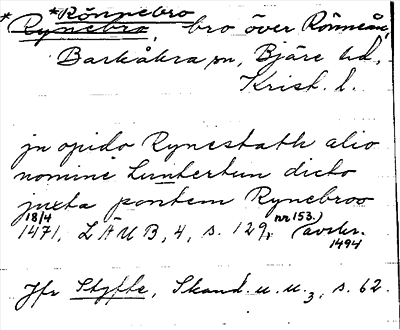 * Rönnebro
* Rynebro, bro över Rönneån,
Barkåkra sn, Bjäre hd,
Krist. l.
jn opido Rynestath alio
nomine Luntertun dicto
juxta pontem Rynebroo
18/4
1471, LÄUB, 4, s. 129, nr 153. (avskr.
1494
Jfr Styffe, Skand. u. u. 3, s. 62.